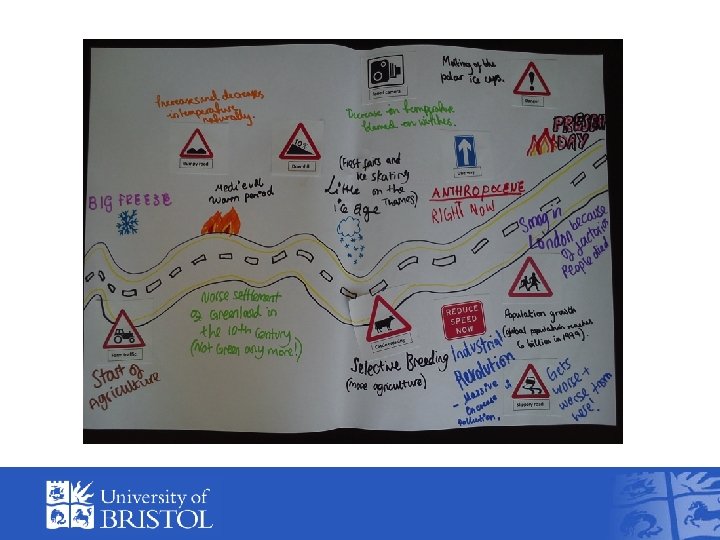 Melting of the
polar ice caps.
Speed camera
Danger
Increases and decreases
in temperature
naturally.
Decrease in temperature
blamed on witches.
PRESENT
DAY
Bumpy road
10%
Downhill
(First fairs and
ice skating
on the
Thames)
Little
ice age
One way
BIG FREEZE
Medieval
warm period
ANTHROPOCENE
RIGHT NOW
Smog in
London because
of factories
People died
Norse settlement
of Greenland in
the 10th century
(Not Green any more!)
REDUCE
SPEED
NOW
Population growth
(global population reaches
6 billion in 1999).
Farm traffic
Start of
Agriculture
Selective Breeding
(more agriculture)
Industrial
Revolution
- Massive
change &
pollution.
Slippery road
Gets
worse +
worse from
here!
University of
BRISTOL